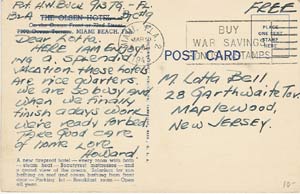 Pvt H.W. Buck
FREE
THE OLSEN HOTEL
On the Ocean Front at 73rd Street
MIAMI BEACH, FLA.
BUY
WAR SAVINGS
BONDS AND STAMPS
POST CARD
Dear Metta,
HERE I AM ENJOY
ING a splendid
vacation. These hotels
are nice quarters.
we are so busy and
when we finally
finish a days work
we're ready for bed.
Take good care
of home Love
Howard.
M. Lotta Bell
28 Garthwaite Ter.
Maplewood,
New Jersey.
A new fireproof hotel — every room with bath
steam heat — Beautyrest mattresses — and
a grand view of the ocean. Solarium for sun
bathing on roof and ocean bathing from front
door — Parking lot — Breakfast room — Open
all year.